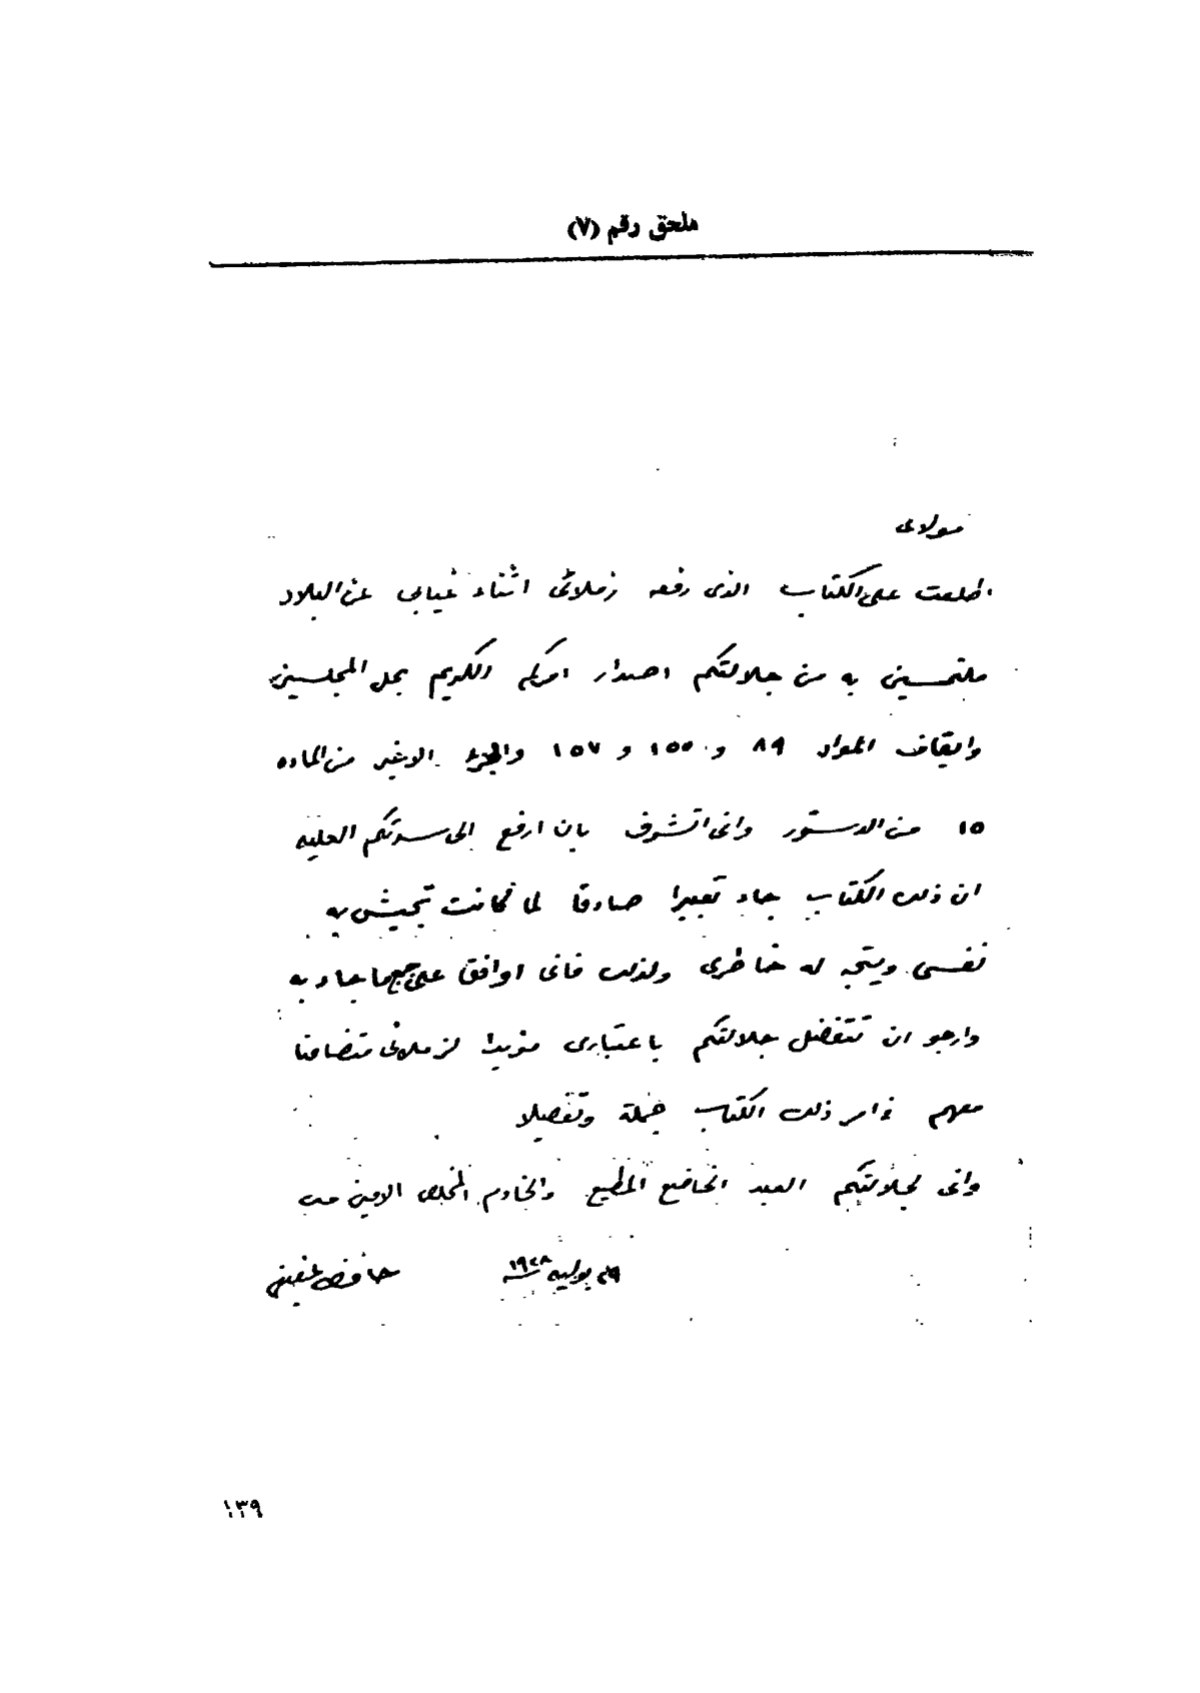 ملحق رقم (٧)
مولاى
اطلعت على الكتاب الذى رفعه زملائى اثناء غيابى عن البلاد
ملتمسين به من جلالتكم اصدار امركم الكريم بحل المجلسين
وايقاف المواد ٨٩ و ١٥٥ و ١٥٧ والجزء الاخير من الماده
١٥ من الدستور وانى اتشرف بان ارفع الى سدتكم العليه
ان ذلك الكتاب جاء تعبيرا صادقا لما كانت تجيش به
نفسى ويتجه له خاطرى ولذلك فانى اوافق على جميع ما جاء به
وارجو ان تتفضل جلالتكم باعتبارى مؤيدا لزملائى متضامنا
معهم فى امر ذلك الكتاب جملة وتفصيلا
وانى لجلالتكم العبد الخاضع المطيع والخادم المخلص الامين
يوليه ١٩٢٨ حافظ عفيفى
١٣٩